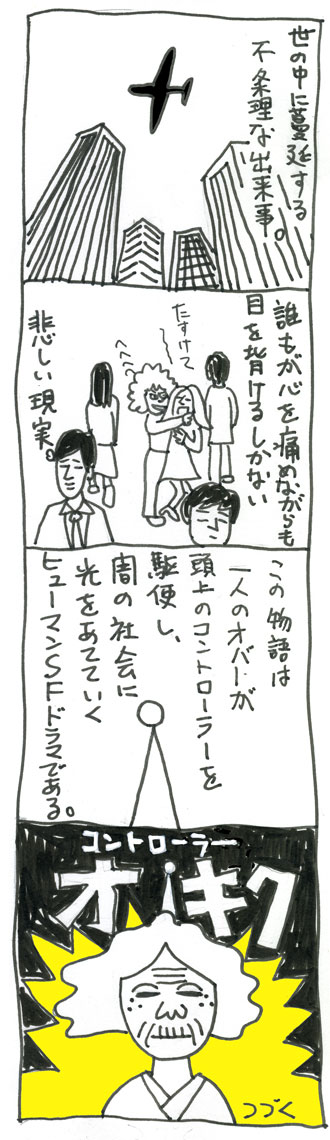 世の中に蔓延する
不条理な出来事。
誰もが心を痛めながらも
目を背けるしかない
たすけて
へへへ
悲しい現実。
この物語は
一人のオバーが
頭上のコントローラーを
駆使し、
闇の社会に
光をあてていく
ヒューマンSFドラマである。
コントローラー
オキク
つづく